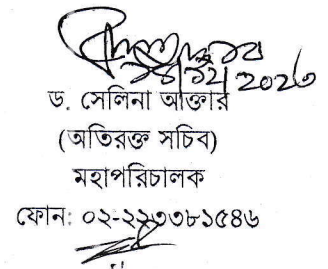 ড. সেলিনা আক্তার
(অতিরক্ত সচিব)
মহাপরিচালক
ফোন: ০২-২২৩৩৮১৫৪৬